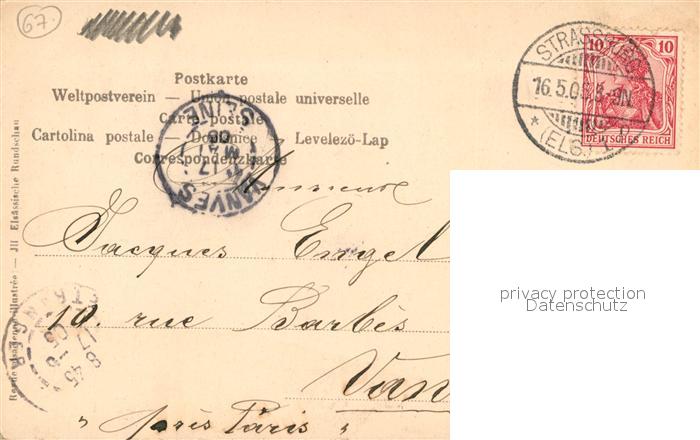 67.
Postkarte
Weltpostverein — Union postale universelle
Carte postale
Cartolina postale — Dopisnice — Levelező-Lap
Correspondenzkarte
STRASSBURG
16.5.0
(ELS.)
10 10
DEUTSCHES REICH
VANVES
SEINE
17
Monsieur
Jacques Engel
10. rue Barbès
Van
" près Paris "
Revue alsacienne illustrée — Jll Elsässische Rundschau
privacy protection
Datenschutz